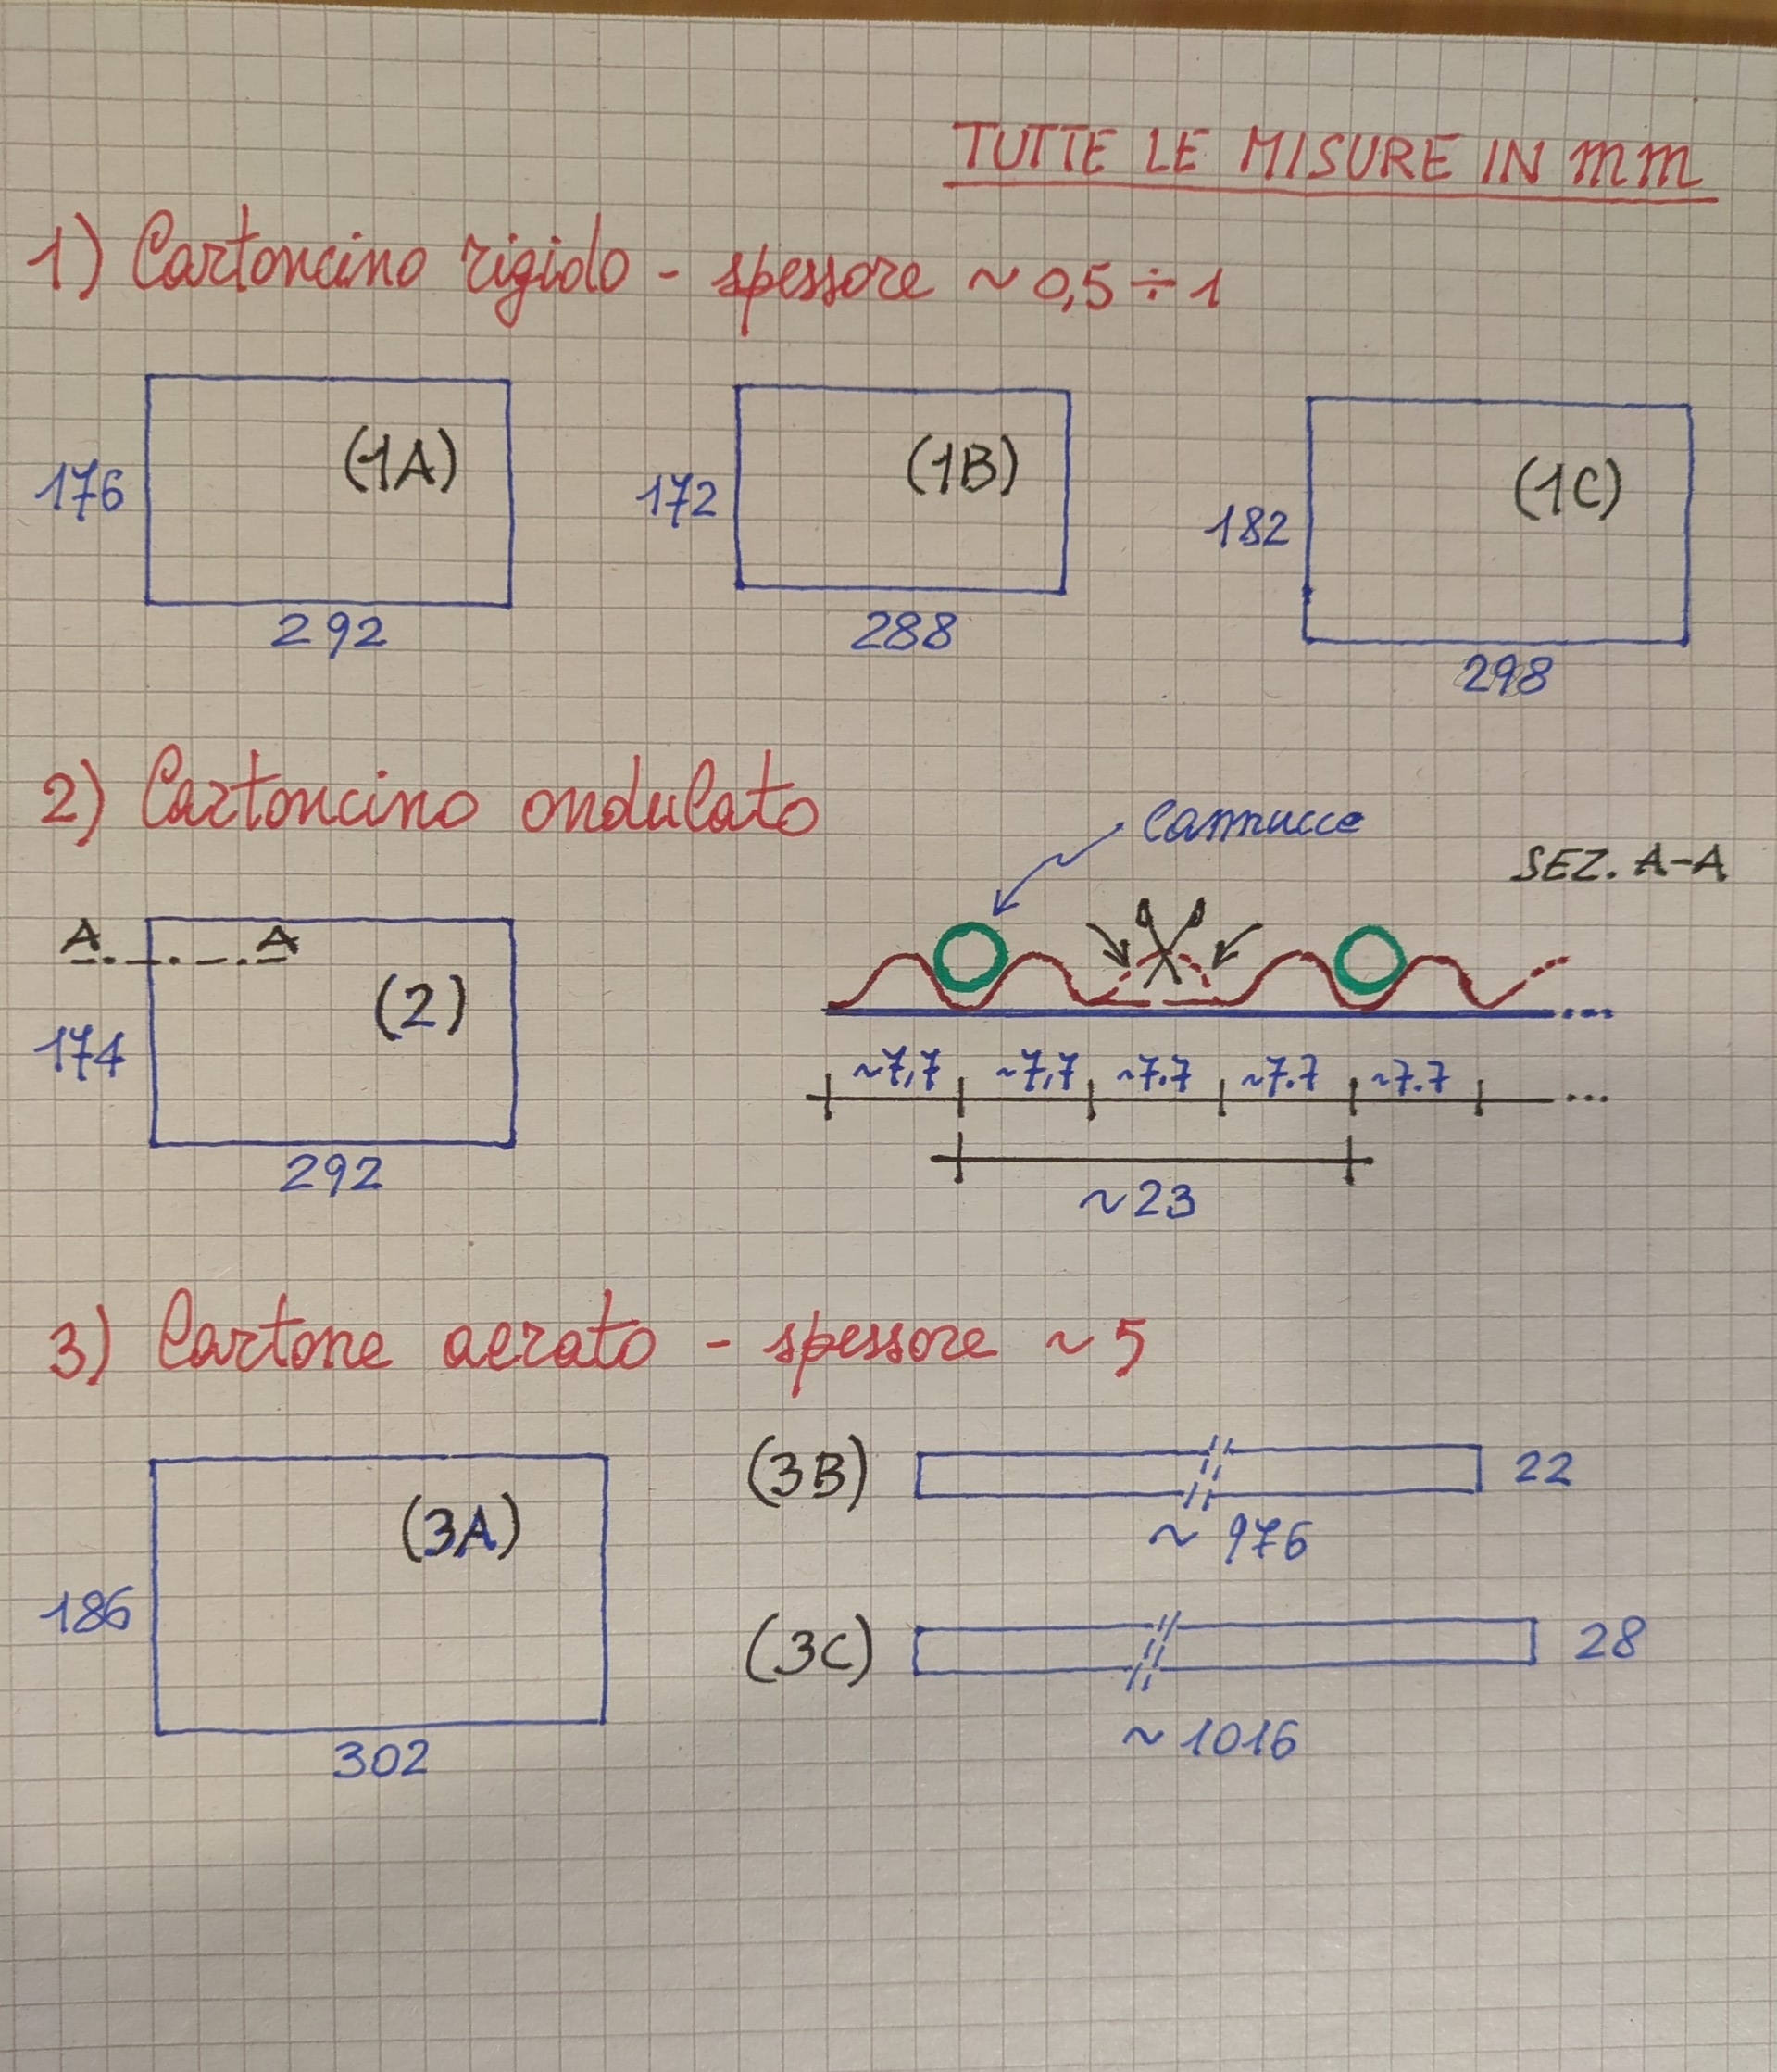 TUTTE LE MISURE IN mm
1) Cartoncino rigido - spessore ~ 0,5 ÷ 1
(1A)
176
292
(1B)
172
288
(1C)
182
298
2) Cartoncino ondulato
cannucce
SEZ. A-A
A A
(2)
174
292
~7,7 ~7,7 ~7.7 ~7.7 ~7.7 ...
~23
3) Cartone aerato - spessore ~ 5
(3A)
186
302
(3B) 22
~ 976
(3C) 28
~ 1016